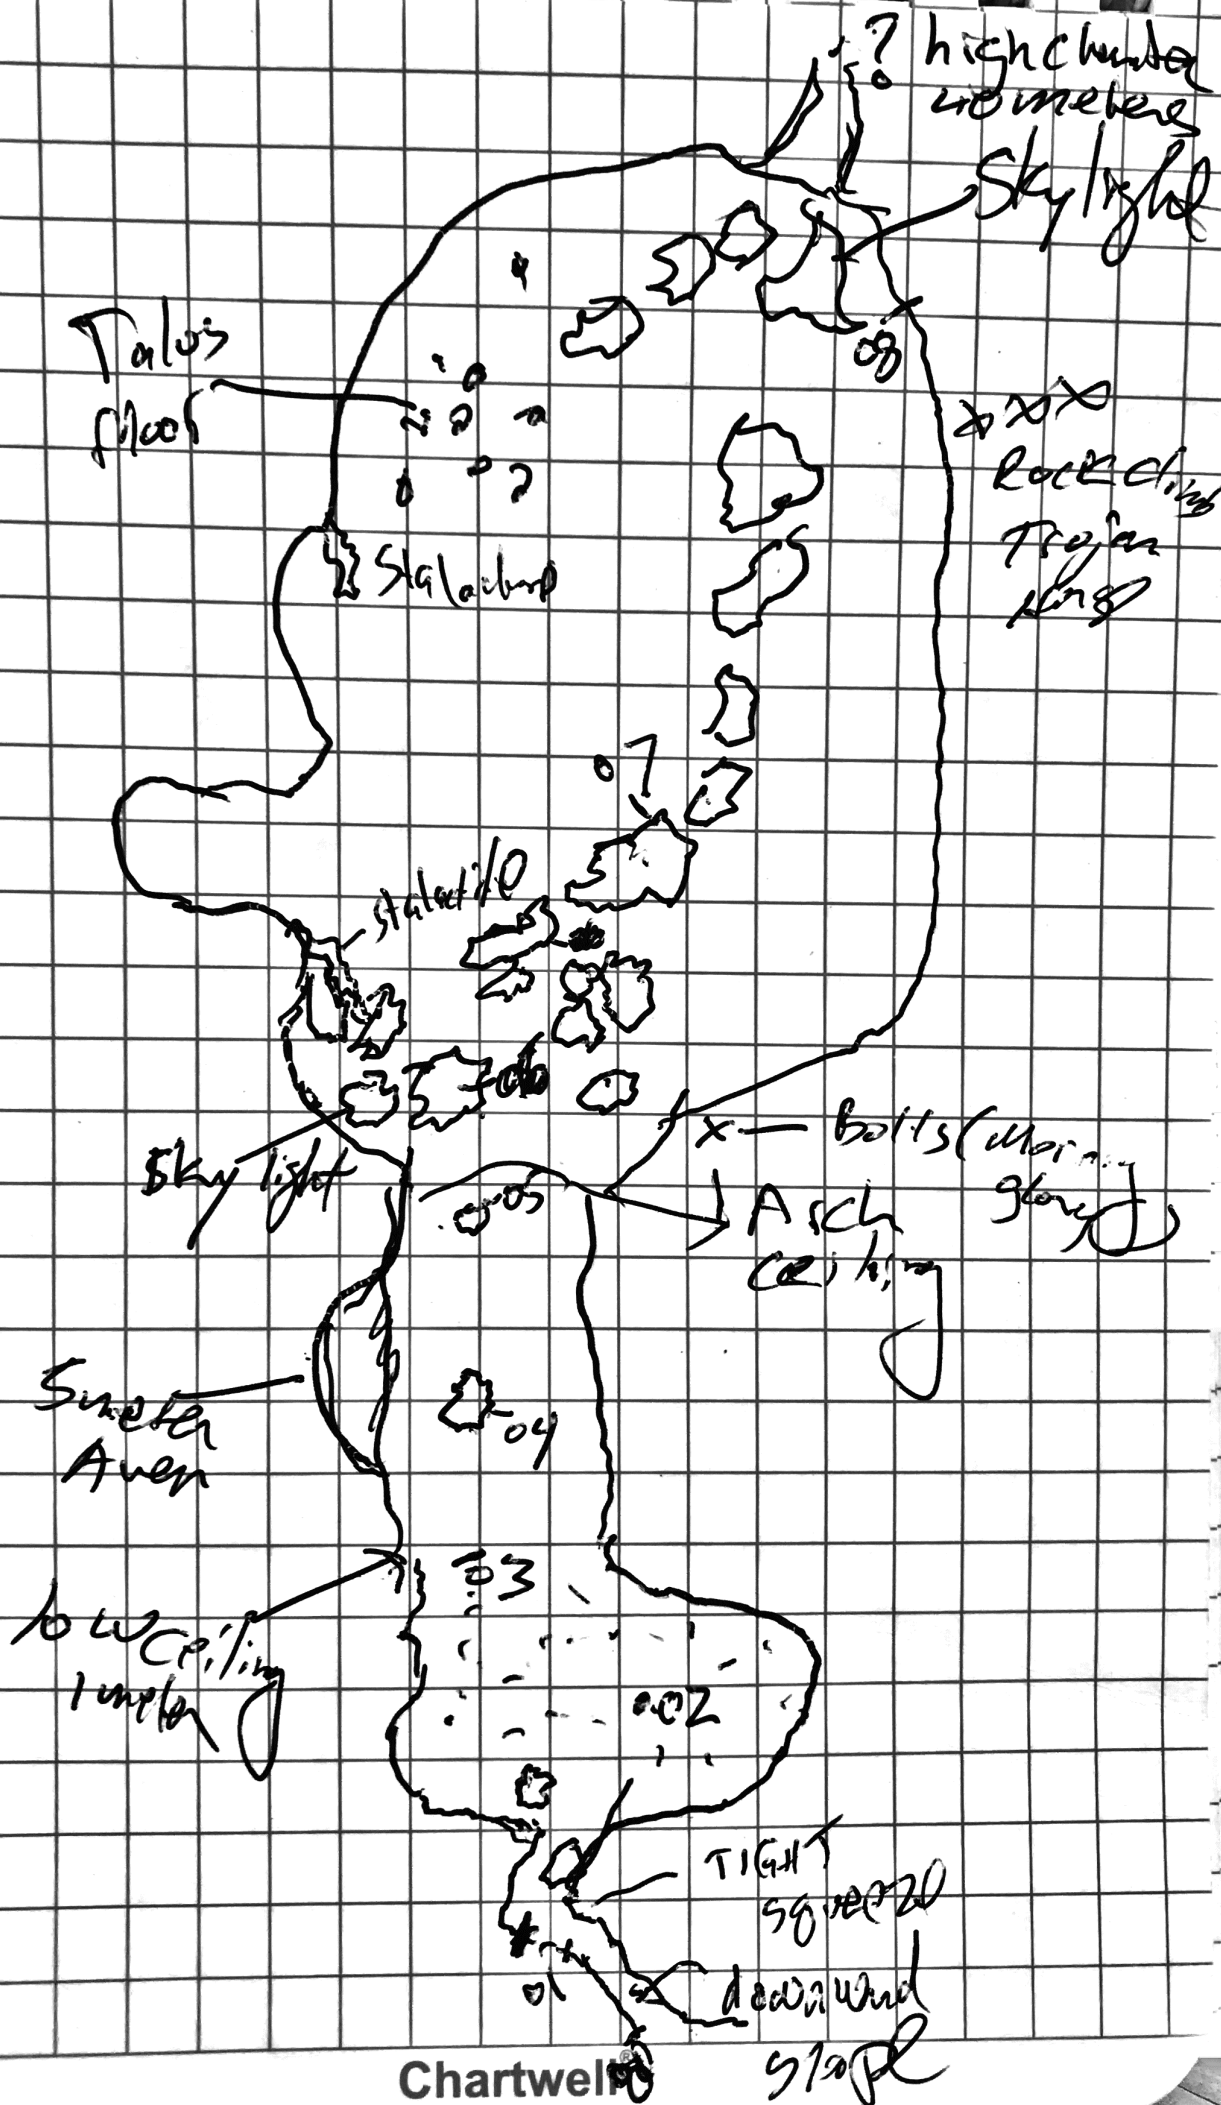 ?
high chamber
40 meters
Skylight
Talus
floor
08
xxx
Rock Climb
Trojan
Stalactite
07
stalactite
06
Skylight
x — Bolts (Morning
glory)
05
Arch
ceiling
5 meter
Aven
04
low ceiling
1 meter
03
02
TIGHT
squeeze
01
downward
slope
00
Chartwell®